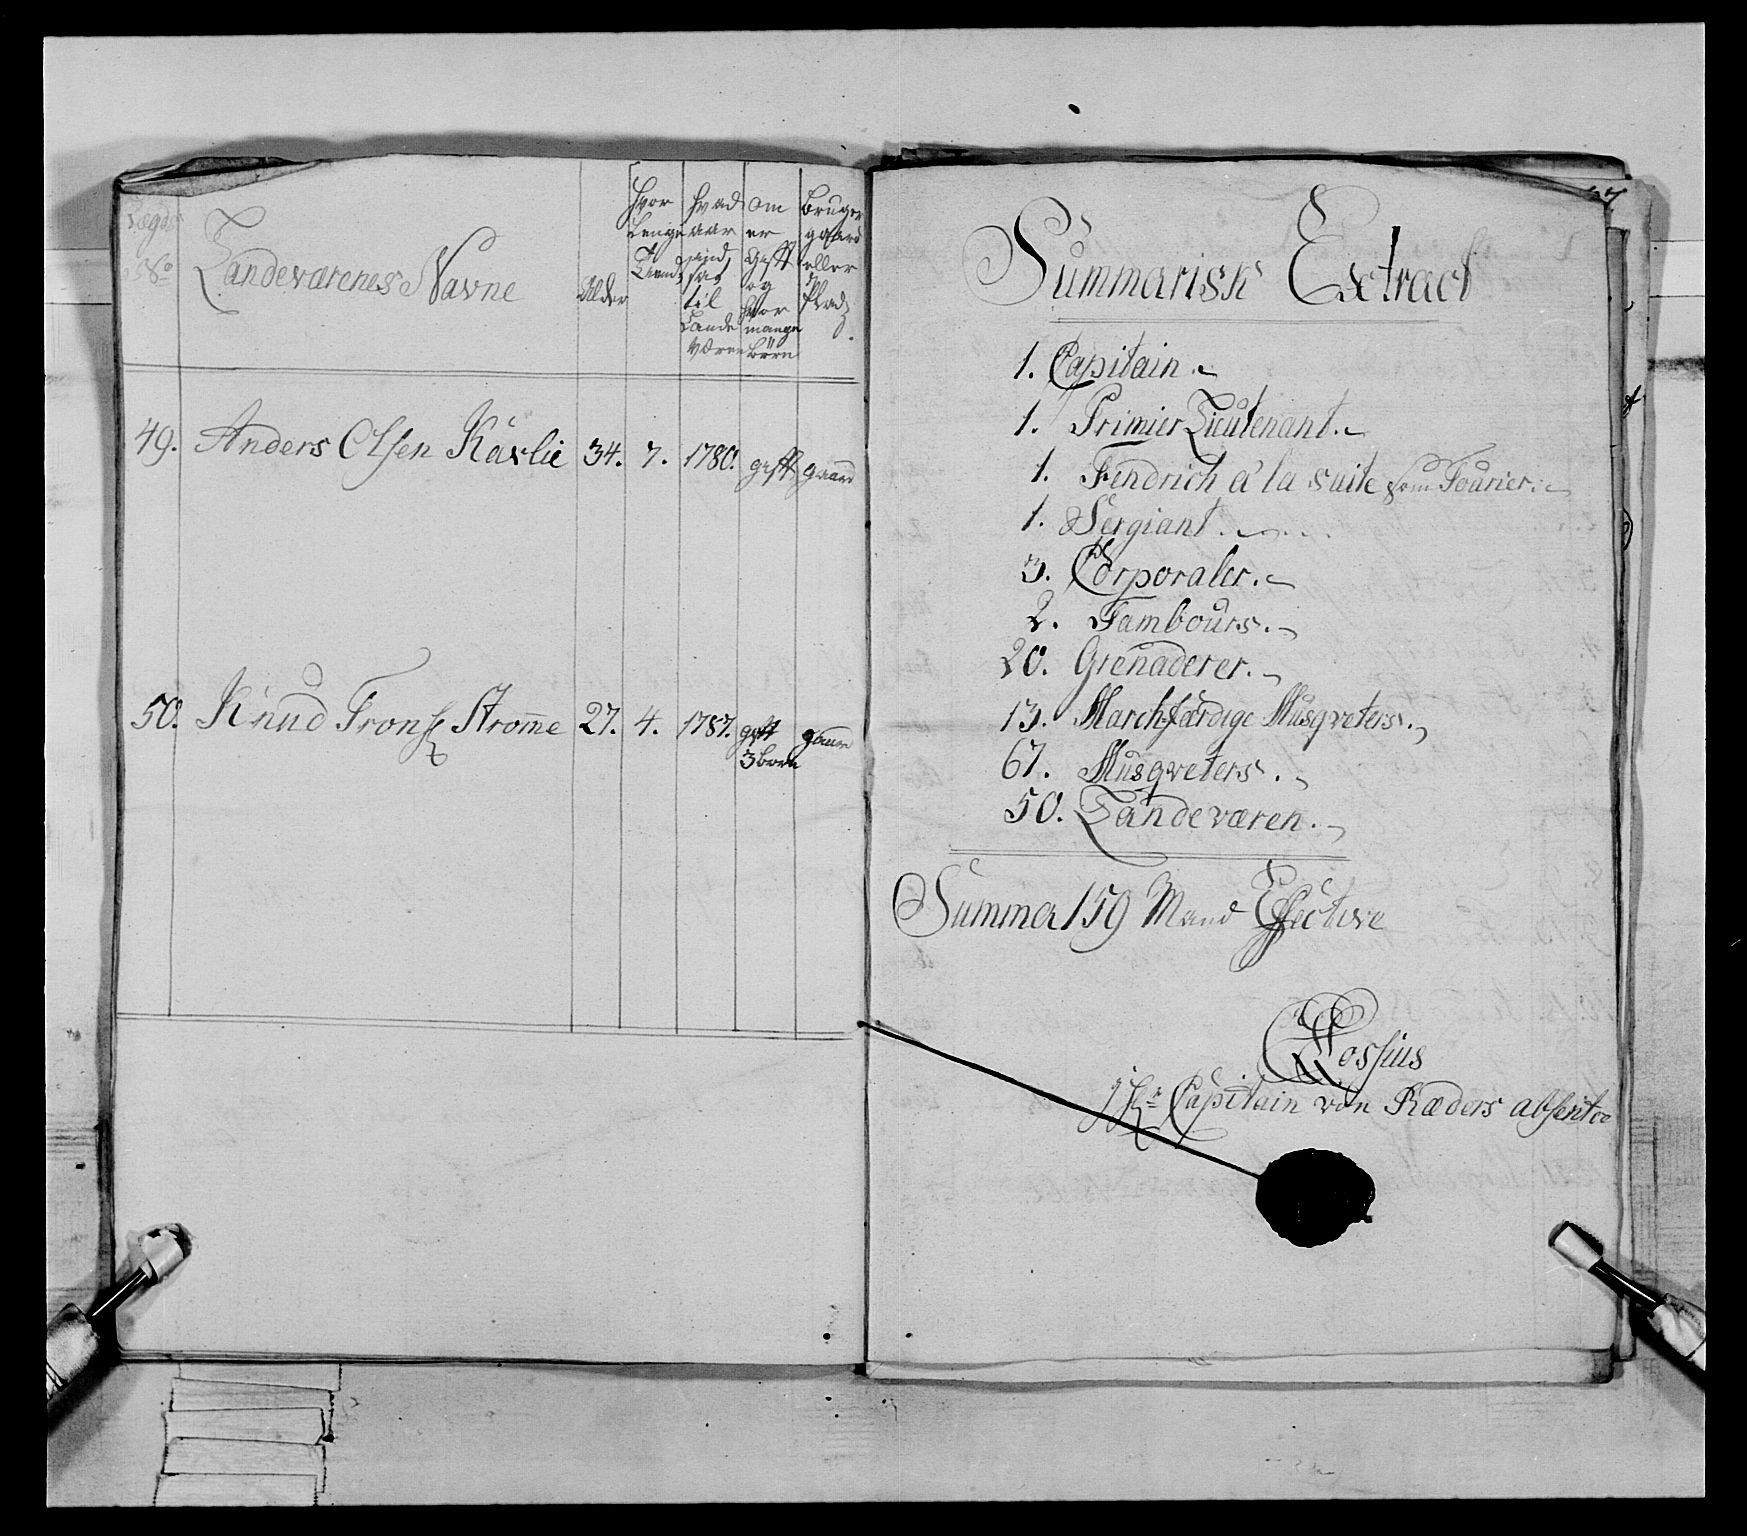 Lægds
No
Landeværenes Navne
Alder
Hvor
Lenge
tiend
hvad
aar
ind
sat
til
Lande
værn
om
er
Gift
og
hvor
mange
Börn
Bruger
gaard
eller
Plads
49. Anders Olsen Kåslie 34. 7. 1780. gift gaard
50. Knud Trons. Strom̄e 27. 4. 1787. gift gaard
3 born
Summarisk Extract
1. Capitain
1. Primier Lieutenant.
1. Fendrich a la suite som Fourier
1. Sergiant
3. Corporaler.
2. Tambours.
20. Grenaderer.
13. Marchfærdige Musqveters.
67. Musqveters.
50. Landeværen.
Summa 159 Mand Effective
Cossius
i Hr Capitain von Ræders absentce